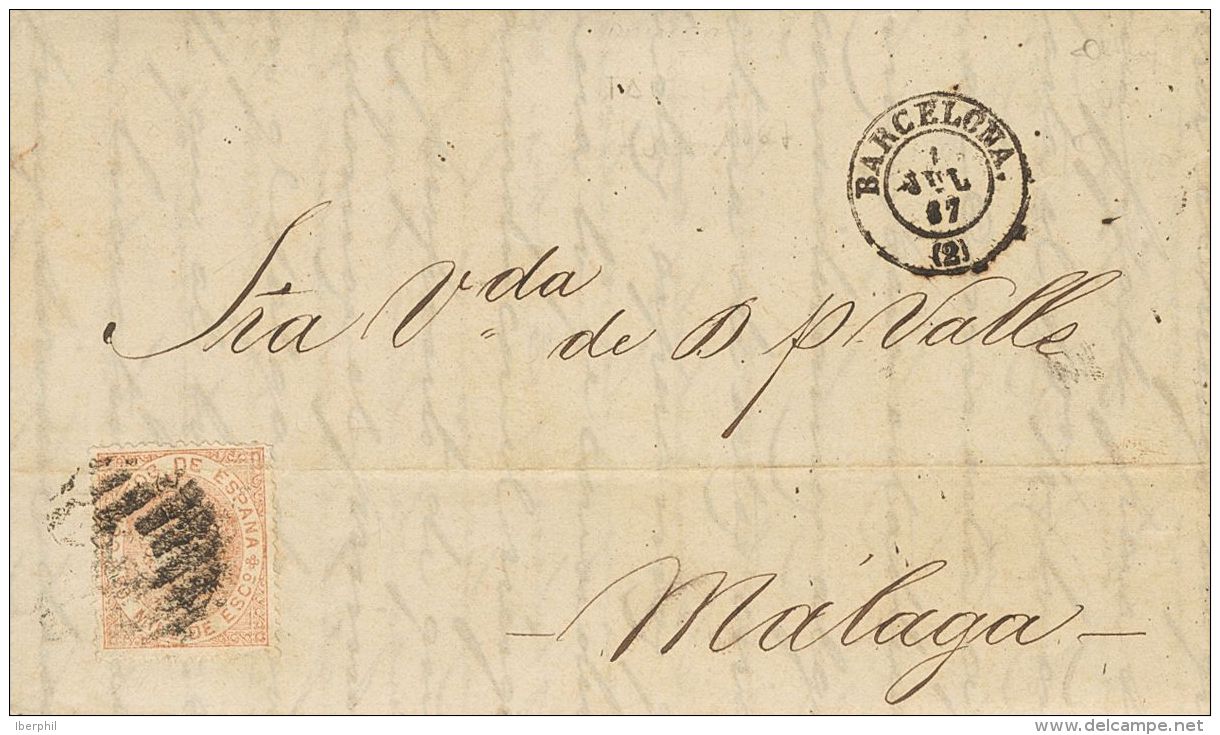 BARCELONA.
1
JUL
67
(2)
Sra Vda de D P. Valle
DE ESPAÑA
DE ESCO
— Málaga —
Iberphil
www.delcampe.net